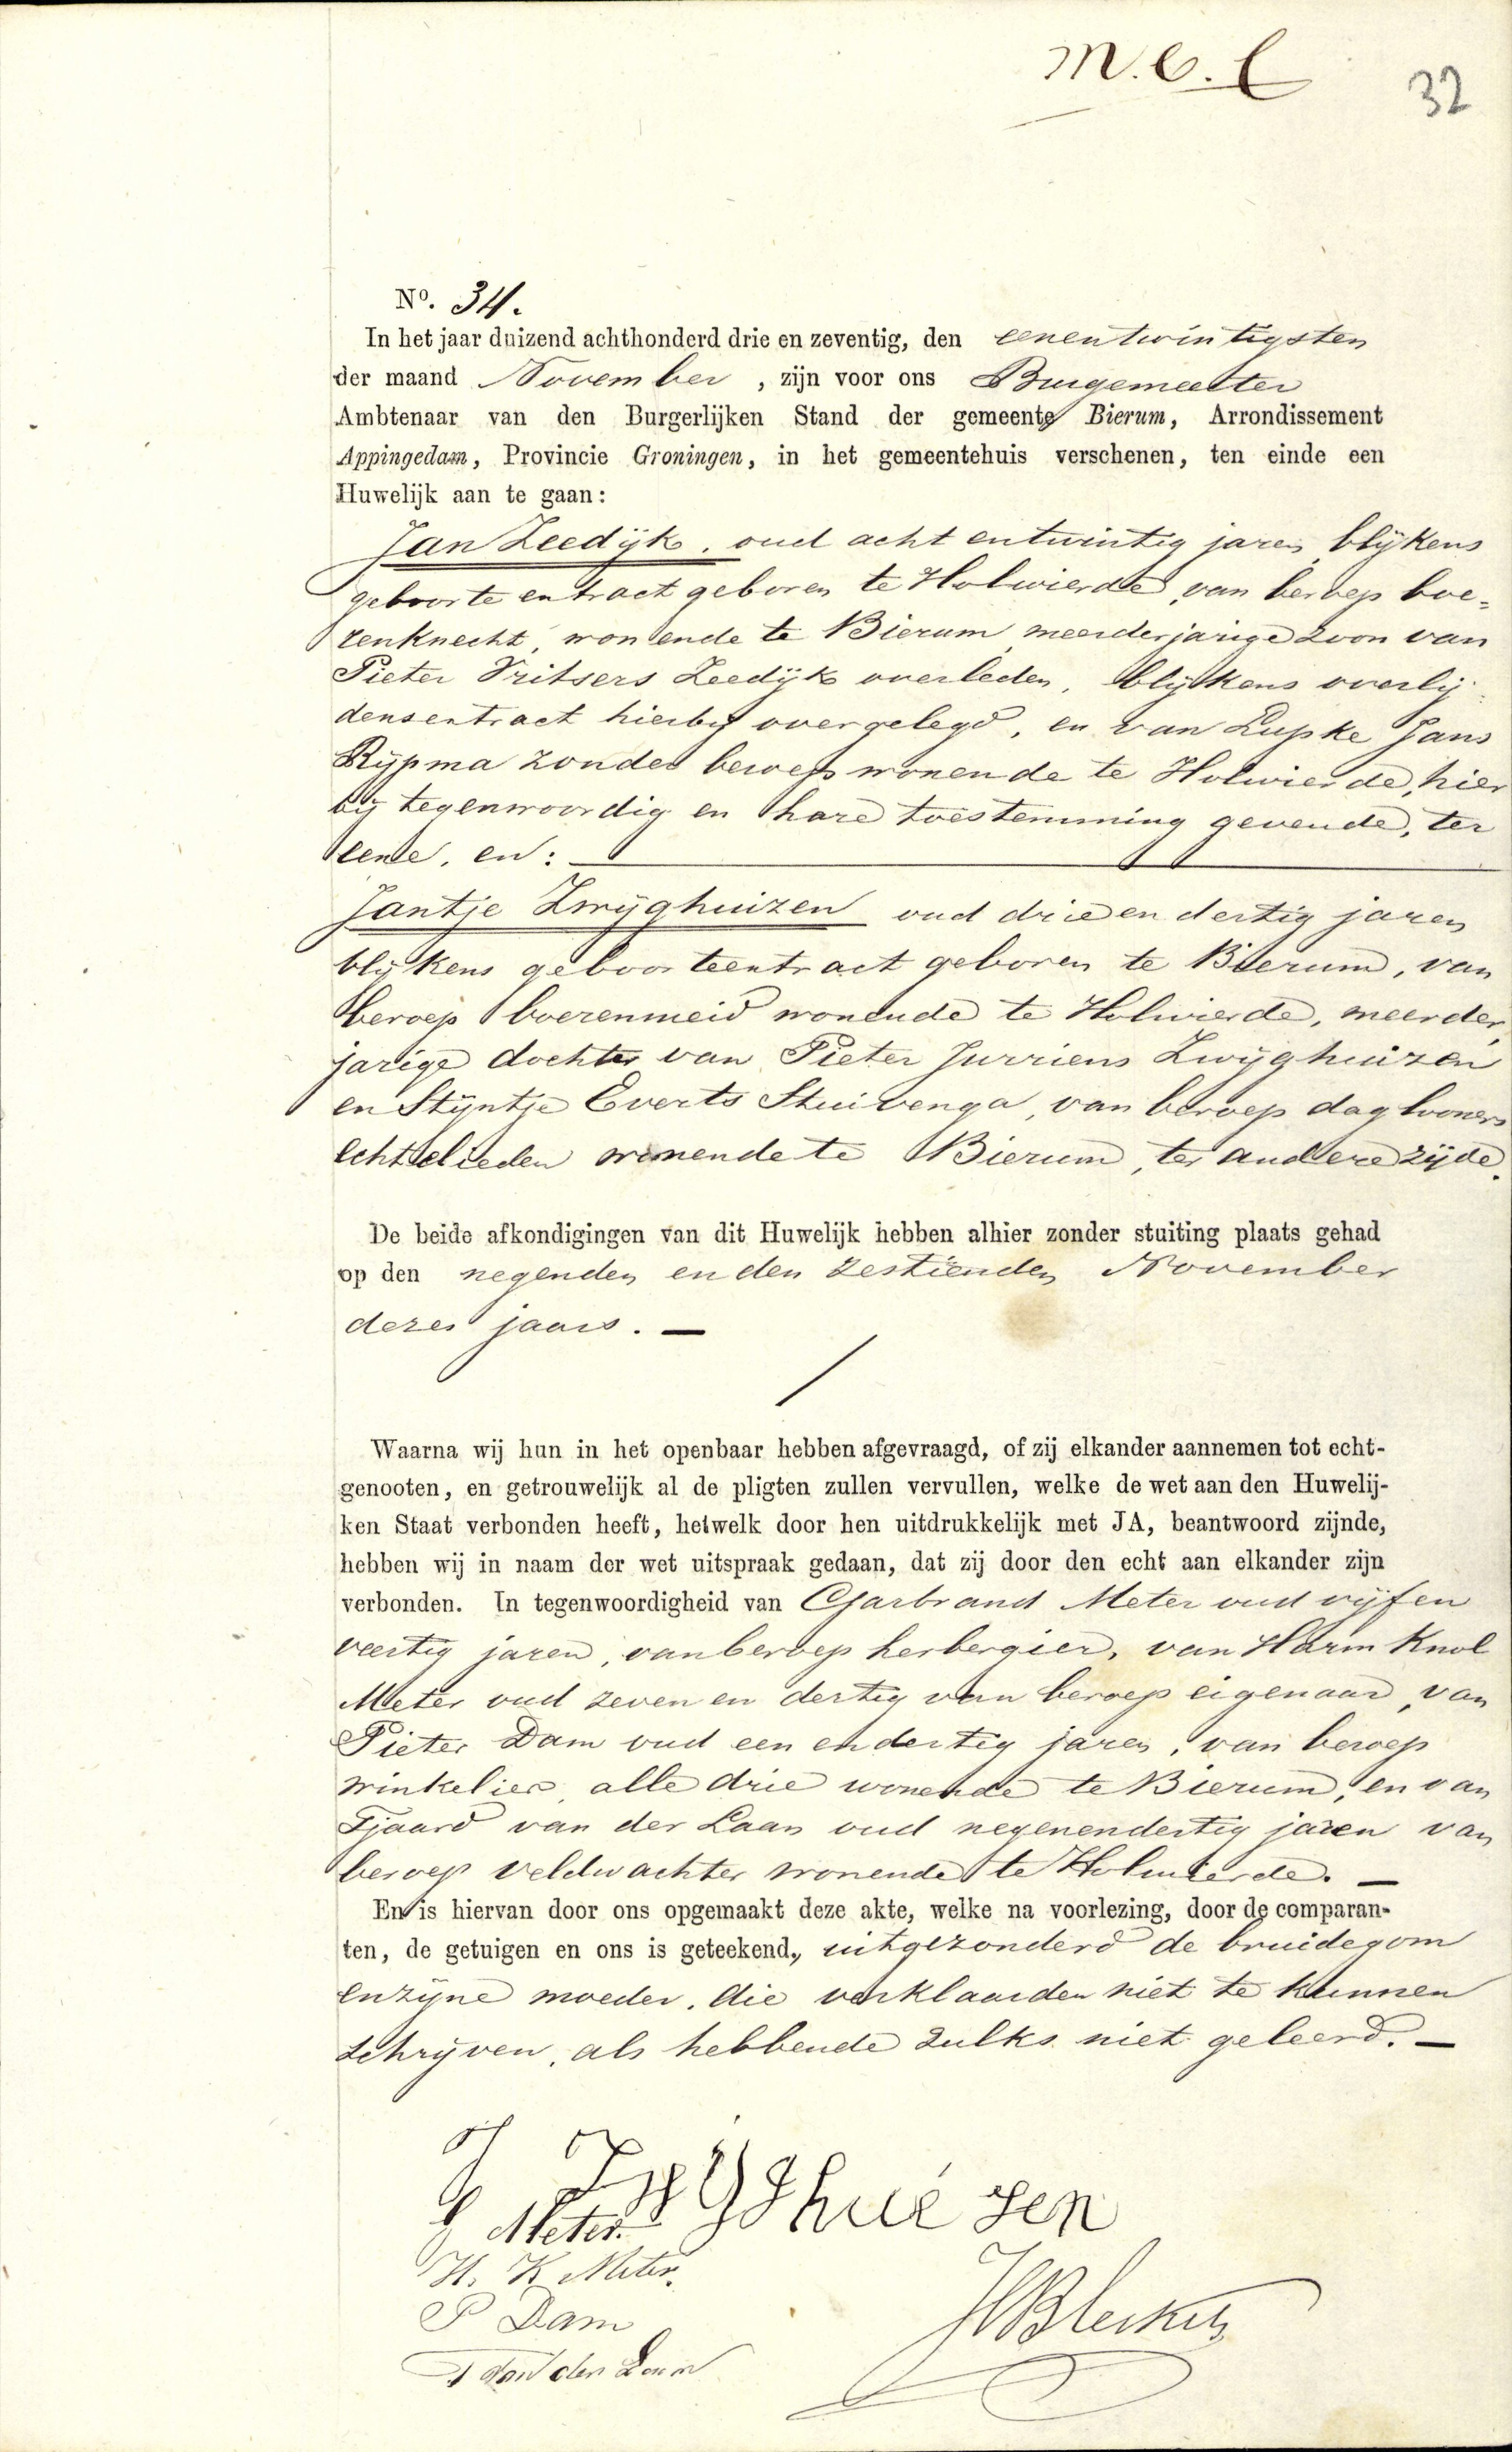 M.C.C
32
No. 34.
In het jaar duizend achthonderd drie en zeventig, den eenentwintigsten
der maand November , zijn voor ons Burgemeester
Ambtenaar van den Burgerlijken Stand der gemeente Bierum, Arrondissement
Appingedam, Provincie Groningen, in het gemeentehuis verschenen, ten einde een
Huwelijk aan te gaan:
Jan Zeedijk, oud acht entwintig jaren blijkens
geboorte extract geboren te Holwierde, van beroep boe-
renknecht, wonende te Bierum, meerderjarige zoon van
Pieter Fritsers Zeedijk overleden, blijkens overlij-
densextract hierbij overgelegd, en van Lupke Jans
Rijpma zonder beroep wonende te Holwierde, hier
bij tegenwoordig en hare toestemming gevende, ter
eene, en:
Jantje Zwijghuizen oud drie en dertig jaren
blijkens geboorteextract geboren te Bierum, van
beroep boerenmeid wonende te Holwierde, meerder
jarige dochter van Pieter Jurriens Zwijghuizen
en Stijntje Everts Stuivenga, van beroep dagloners
echtelieden wonende te Bierum, ter andere zijde.
De beide afkondigingen van dit Huwelijk hebben alhier zonder stuiting plaats gehad
op den negenden en den zestienden November
dezes jaars. —
Waarna wij hun in het openbaar hebben afgevraagd, of zij elkander aannemen tot echt-
genooten, en getrouwelijk al de pligten zullen vervullen, welke de wet aan den Huwelij-
ken Staat verbonden heeft, hetwelk door hen uitdrukkelijk met JA, beantwoord zijnde,
hebben wij in naam der wet uitspraak gedaan, dat zij door den echt aan elkander zijn
verbonden. In tegenwoordigheid van Garbrand Meter oud vijf en
veertig jaren, van beroep herbergier, van Harm Knol
Meter oud zeven en dertig van beroep eigenaar, van
Pieter Dam oud een en dertig jaren, van beroep
winkelier, alle drie wonende te Bierum, en van
Tjaard van der Laan oud negenendertig jaren van
beroep veldwachter wonende te Holwierde. —
En is hiervan door ons opgemaakt deze akte, welke na voorlezing, door de comparan-
ten, de getuigen en ons is geteekend, uitgezonderd de bruidegom
en zijne moeder, die verklaarden niet te kunnen
schrijven, als hebbende zulks niet geleerd. —
J Zwyghuizen
G Meter.
H. K Meter.
P Dam
T van der Laan